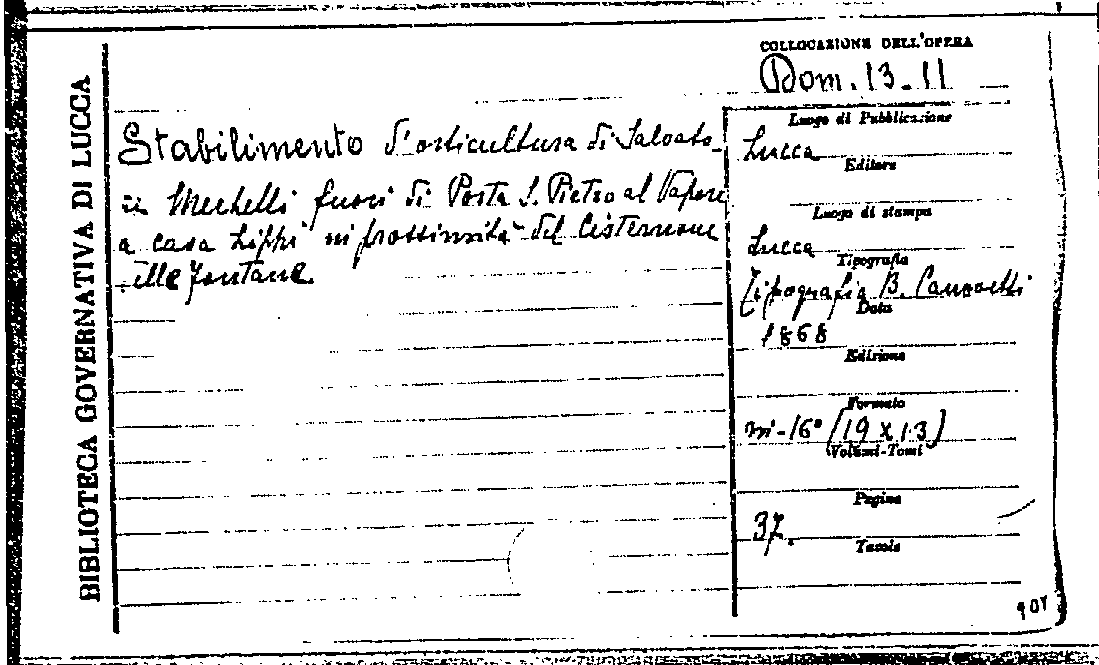 BIBLIOTECA GOVERNATIVA DI LUCCA
COLLOCAZIONE DELL'OPERA
Dom. 13-11
Stabilimento d'orticultura di Salvato-
re Mechelli fuori di Porta S. Pietro al Vapore
a casa Lippi in prossimità del Cisternone
delle fontane.
Luogo di Pubblicazione
Lucca
Editore
Luogo di stampa
Lucca
Tipografia
Tipografia B. Canovetti
Data
1868
Edizione
Formato
in-16° (19 x 13)
Volumi-Tomi
Pagine
37.
Tavole